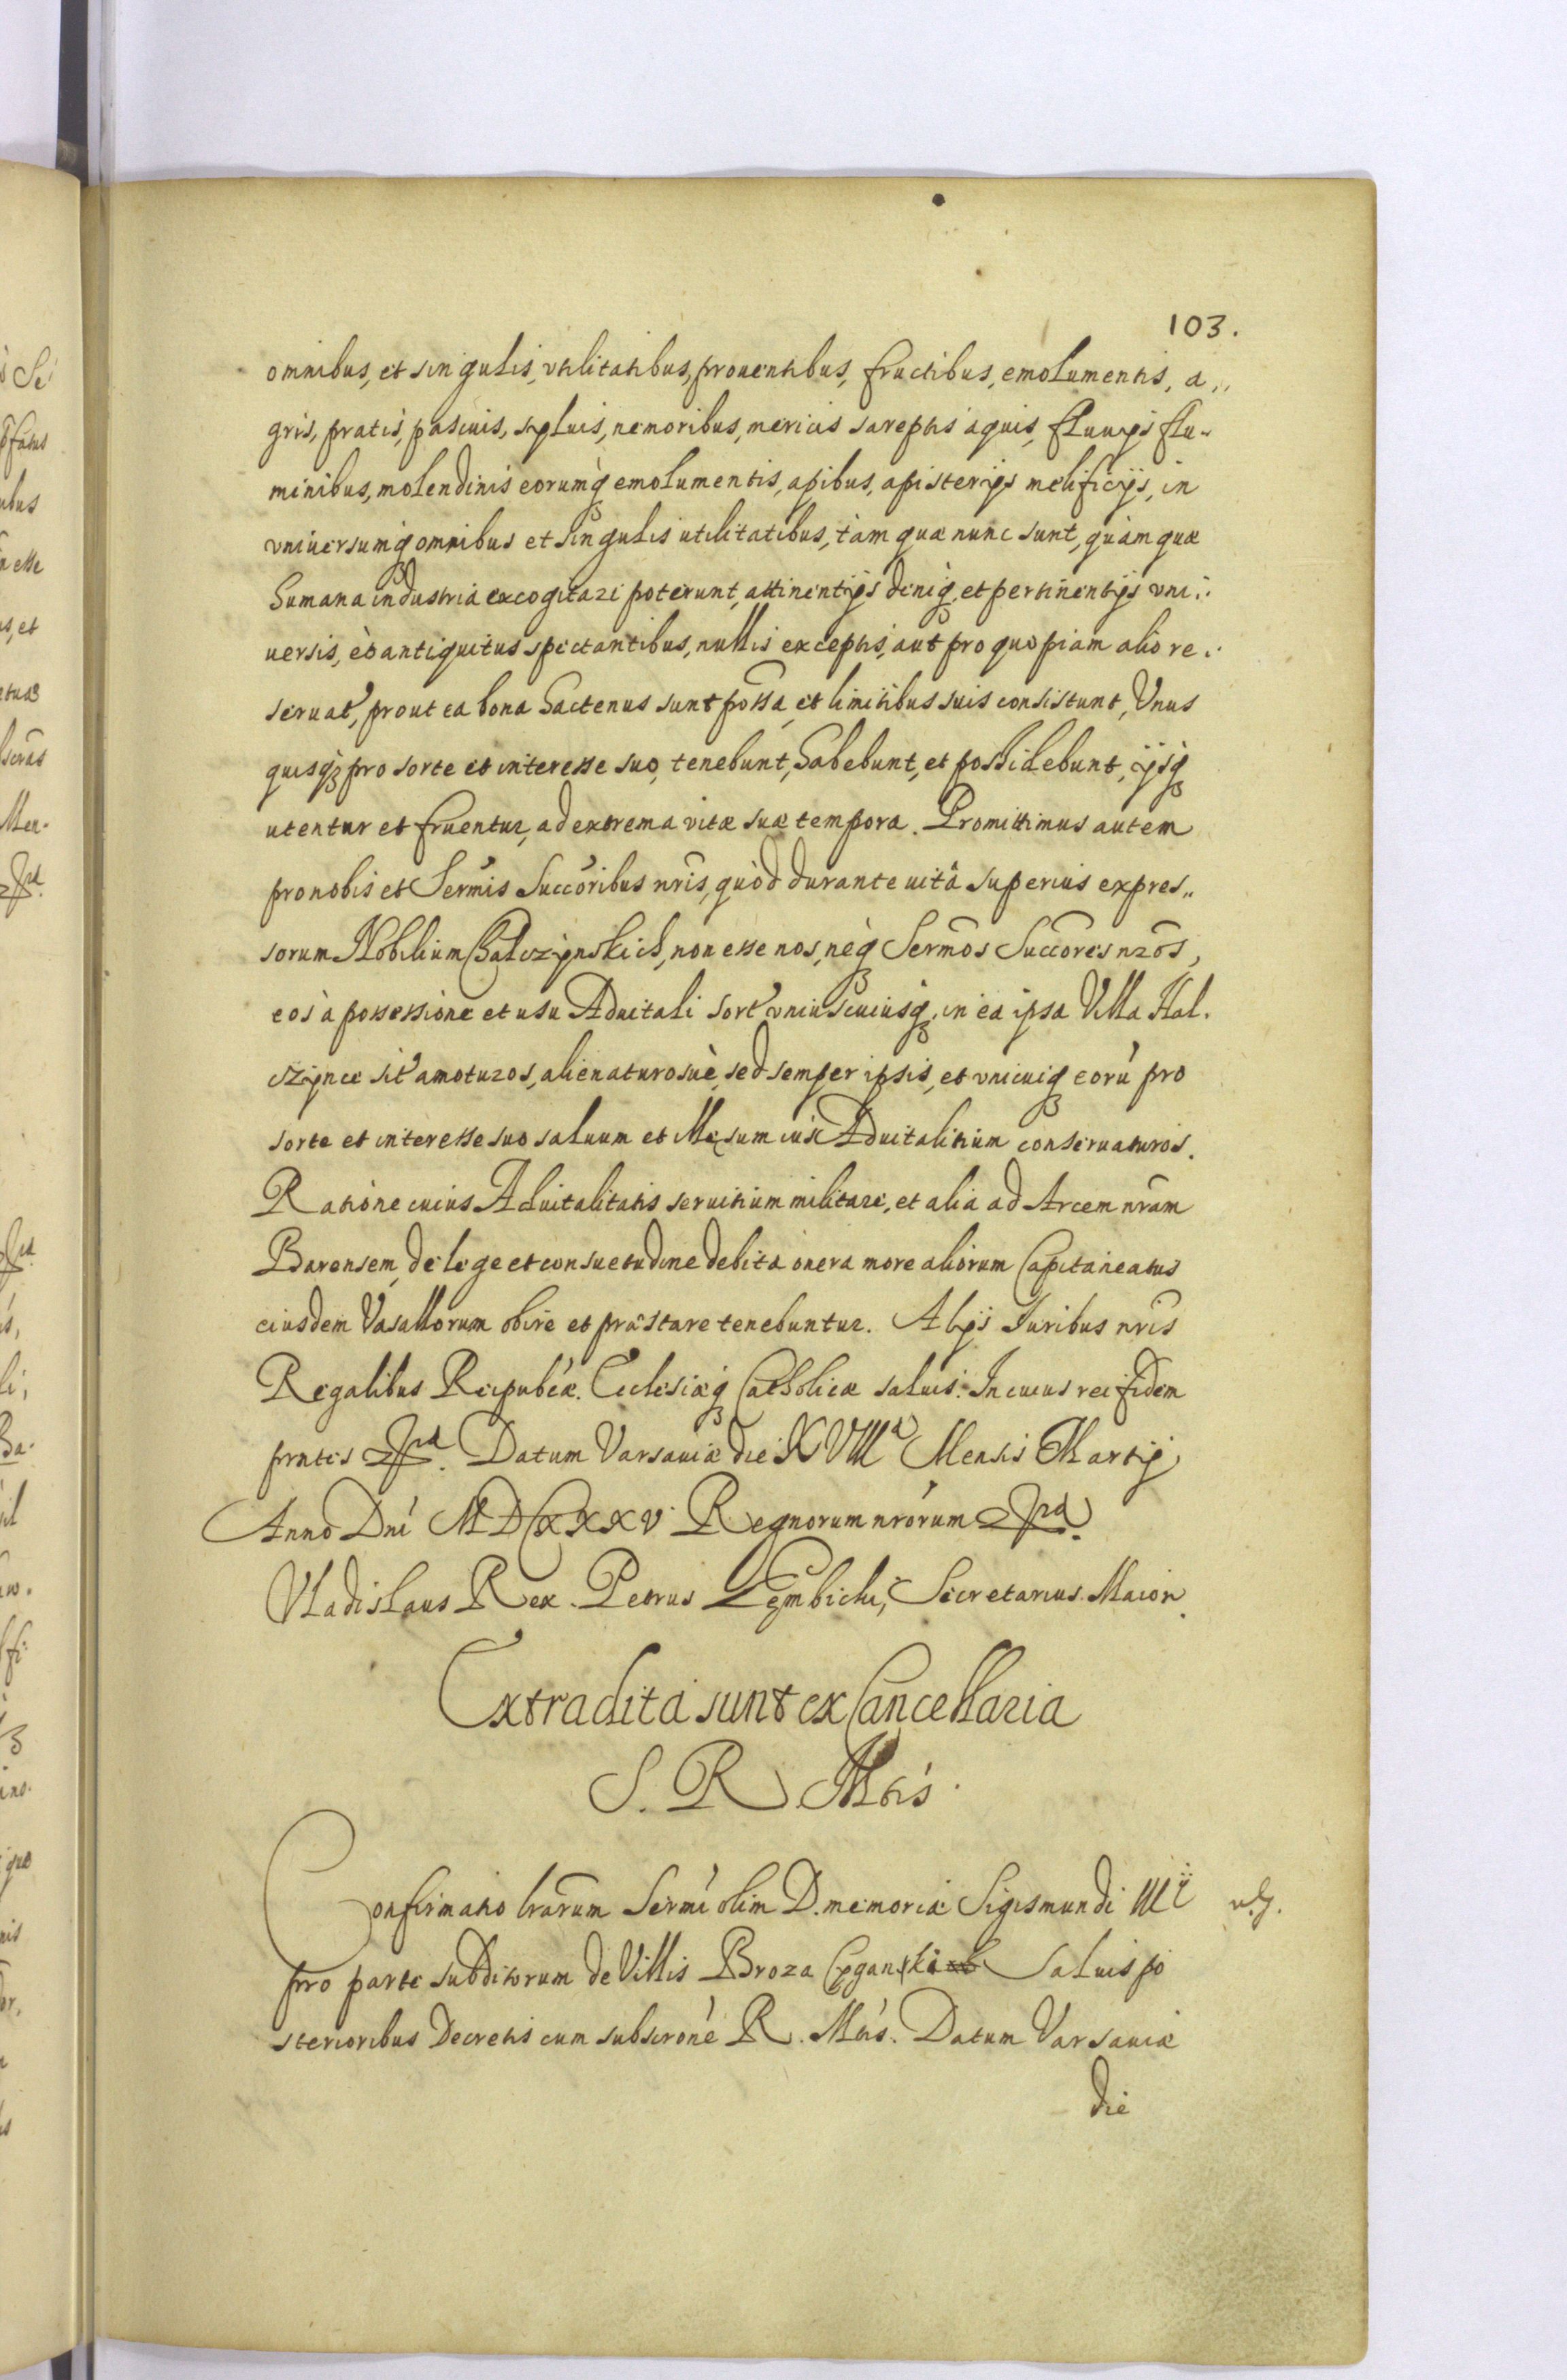 103.
omnibus, et singulis, vtilitatibus, prouentibus, fructibus, emolumentis, a„
gris, pratis, pascuis, syluis, nemoribus, mericis sareptis aquis, fluuijs flu-
minibus, molendinis eorumq3 emolumentis, apibus, apisterijs melificijs, in
vniuersumq3 omnibus et singulis utilitatibus, tàm quæ nunc sunt, quàm quæ
humana industria excogitari poterunt, attinentijs deniq3, et pertinentijs vni„
uersis, eò antiquitus spectantibus, nullis exceptis, aut pro quopiam alio re„
seruat', prout ea bona hactenus sunt possa, et limitibus suis consistunt, Vnus
quisq3 pro sorte et interesse suo, tenebunt, habebunt, et possidebunt, ijsq3
utentur et fruentur, ad extrema vitæ suæ tempora. Promittimus autem
pro nobis et Sermis Succoribus nris, quòd durante uitâ superius expres„
sorum Nobilium Halczÿnskich, non esse nos, neq3 Sermos Succores nros,
eos à possessione et usu Aduitali sort' vniuscuiusq3, in ea ipsa Villa Hal.
czÿnce sit' amoturos, alienaturosuè, sed semper ipsis, et vnicuiq3 eorù pro
sorte et interesse suo saluum et illęsum ius Aduitalitium conseruaturos.
Ratione cuius Aduitalitatis seruitium militare, et alia ad Arcem nram
Barensem, de lege et consuetudine debita onera more aliorum Capitaneatus
eiusdem Vasallorum obire et præstare tenebuntur. Alijs Iuribus nris
Regalibus Reipubcæ. Ecclesiæq3 Catholicæ saluis. In cuius rei fidem
prntes Datum Varsauiæ die XVIIIa Mensis Martij
Anno Dni MDCXXXV. Regnorum nrorum
Vladislaus Rex. Petrus Gembicki, Secretarius Maior.
Extradita sunt ex Cancellaria
S. R. Mtis.
Confirmatio lrarum Sermi olim D. memoriæ Sigismundi III
pro parte subditorum de Villis Broza Saluis po
sterioribus Decretis cum subscrone R. Mtis. Datum Varsauiæ
die